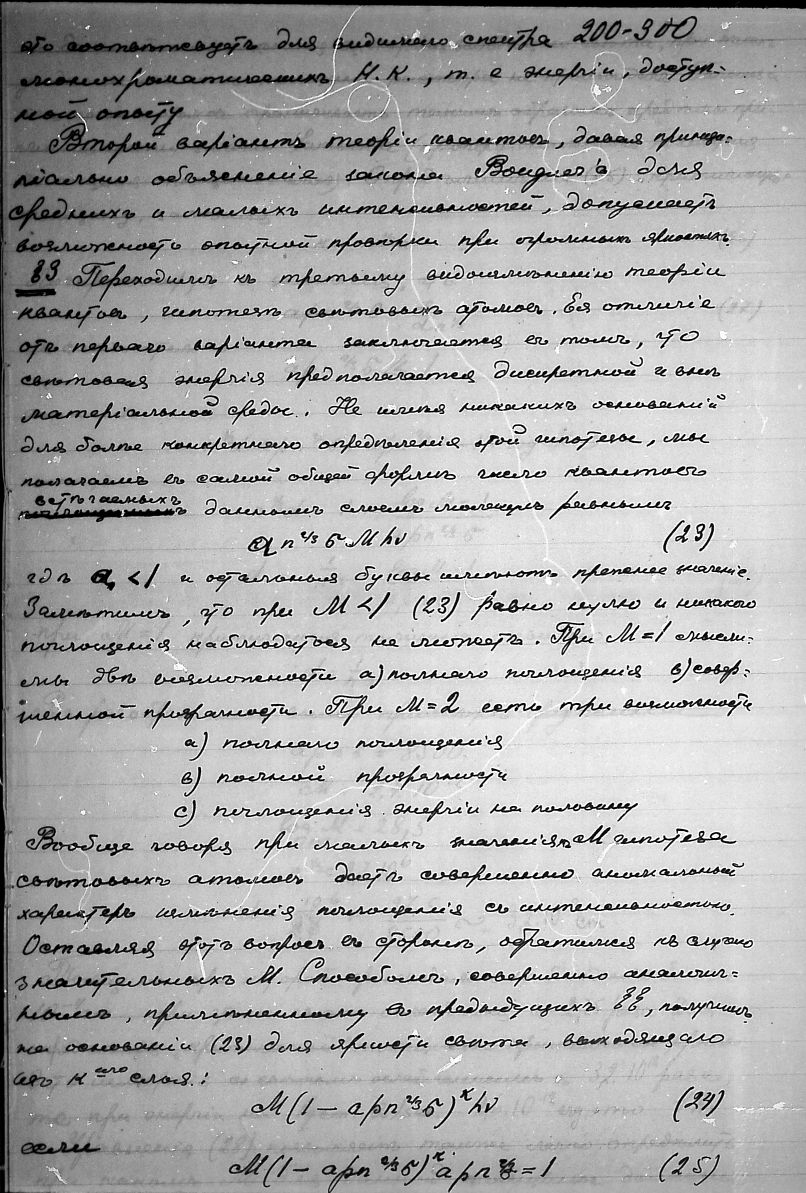 это соотвѣтствуетъ для видимаго спектра 200-300
монохроматическихъ Н.К., т. е энергіи, доступ-
ной опыту
Второй варіантъ теоріи квантовъ, давая принци-
піально объясненіе закона Bouguer'a для
среднихъ и малыхъ интенсивностей, допускаетъ
возможность опытной провѣрки при огромныхъ яркостяхъ.
§3 Переходимъ къ третьему видоизмѣненію теоріи
квантовъ, гипотезѣ свѣтовыхъ атомовъ. Ея отличіе
отъ перваго варіанта заключается въ томъ, что
свѣтовая энергія предполагается дискретной и внѣ
матеріальной среды. Не имѣя никакихъ основаній
для болѣе конкретнаго опредѣленія этой гипотезы, мы
полагаемъ въ самой общей формѣ число квантовъ
встрѣчаемыхъ
даннымъ слоемъ молекулъ равнымъ
a n^{2/3} σ M hν (23)
гдѣ a < 1 и остальныя буквы имѣютъ прежнее значеніе.
Замѣтимъ, что при M < 1 (23) равно нулю и никакого
поглощенія наблюдаться не можетъ. При M = 1 мысли-
мы двѣ возможности a) полнаго поглощенія b) совер-
шенной прозрачности. При M = 2 есть три возможности
a) полнаго поглощенія
b) полной прозрачности
c) поглощенія энергіи на половину
Вообще говоря при малыхъ значеніяхъ M гипотеза
свѣтовыхъ атомовъ даетъ совершенно аномальный
характеръ измѣненія поглощенія съ интенсивностью.
Оставляя этотъ вопросъ въ сторонѣ, обратимся къ случаю
значительныхъ M. Способомъ, совершенно аналогич-
нымъ, примѣненному въ предыдущихъ §§, получимъ
на основаніи (23) для яркости свѣта, выходящаго
изъ к^{аго} слоя:
M(1 - apn^{2/3}σ)^к hν (24)
если
M(1 - apn^{2/3}σ)^к apn^{2/3}σ = 1 (25)